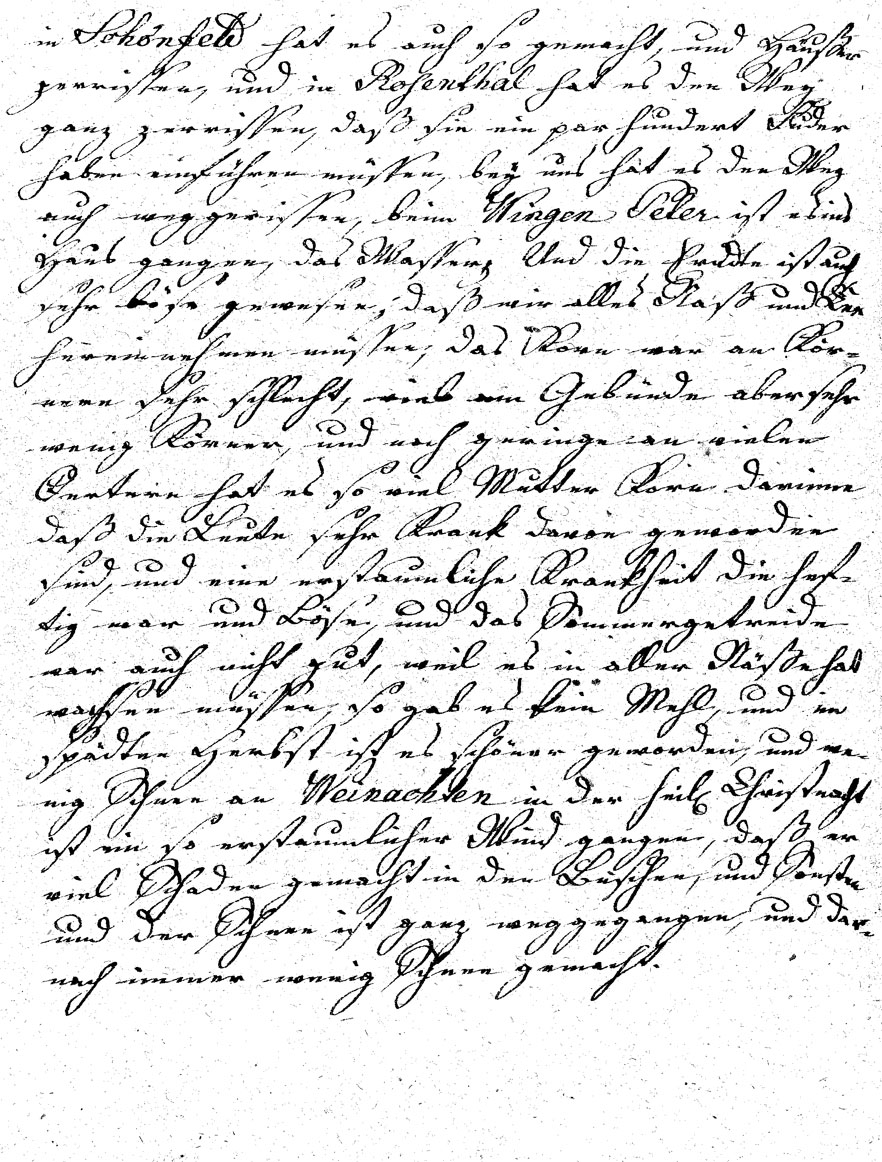 in Schönfeld hat es auch so gemacht, und Häußer
zerrissen, und in Rosenthal hat es den Weg
ganz zerrissen, daß sie ein par hundert Fuder
haben einführen müssen, bey uns hat es den Weg
auch weggerissen, beim Wingen Peter ist es ins
Haus gangen, das Wasser, Und die Erndte ist auch
sehr böse gewesen, daß wir alles Naß und
hereinnehmen müssen, das Korn war an Kör-
nern sehr schlecht, viel am Gebünde aber sehr
wenig Körner, und noch geringe an vielen
Oertern hat es so viel Mutter Korn darinne
daß die Leute sehr Krank davon geworden
sind, und eine erstaunliche Krankheit die hef-
tig war und Böse, und das Sommergetreide
war auch nicht gut, weil es in aller Näße hat
wachsen müssen, so gab es kein Mehl, und im
spädten Herbst ist es schöner geworden, und we-
nig Schnee an Weinachten in der heil. Christnacht
ist ein so erstaunlicher Wind gangen, daß er
viel Schaden gemacht in den Büschen, und Sonsten
und der Schnee ist ganz weggegangen, und dar-
nach immer wenig Schnee gemacht.